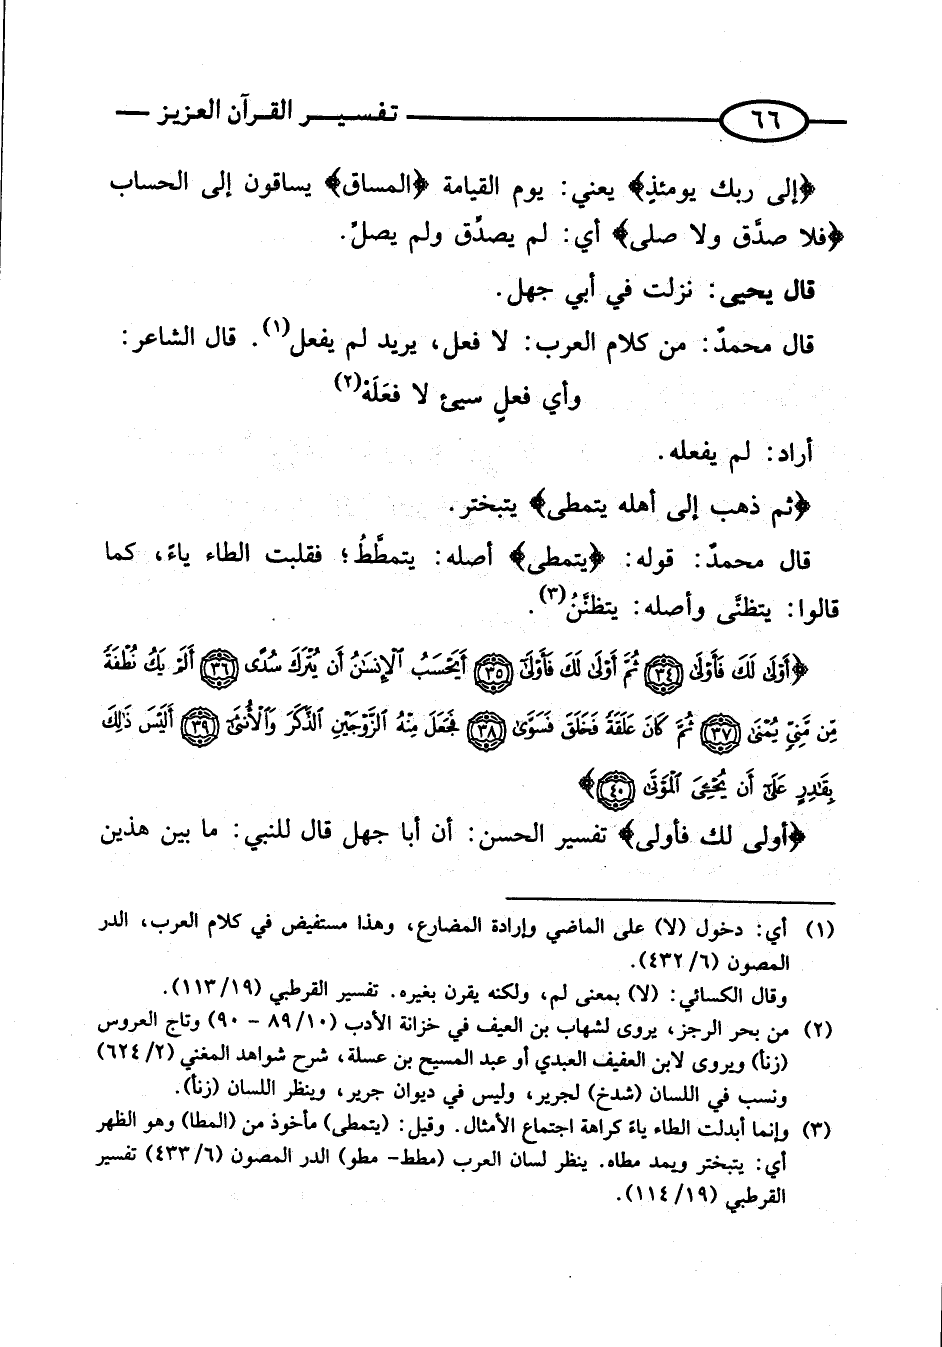 ٦٦ تفسير القرآن العزيز
﴿إلى ربك يومئذٍ﴾ يعني: يوم القيامة ﴿المساق﴾ يساقون إلى الحساب
﴿فلا صدَّق ولا صلى﴾ أي: لم يصدِّق ولم يصلِّ.
قال يحيى: نزلت في أبي جهل.
قال محمدٌ: من كلام العرب: لا فعل، يريد لم يفعل(١). قال الشاعر:
وأي فعلٍ سيئ لا فعَلَهْ(٢)
أراد: لم يفعله.
﴿ثم ذهب إلى أهله يتمطى﴾ يتبختر.
قال محمدٌ: قوله: ﴿يتمطى﴾ أصله: يتمطَّطُ؛ فقلبت الطاء ياءً، كما
قالوا: يتظنَّى وأصله: يتظنَّنُ(٣).
﴿أَوْلَىٰ لَكَ فَأَوْلَىٰ ٣٤ ثُمَّ أَوْلَىٰ لَكَ فَأَوْلَىٰٓ ٣٥ أَيَحْسَبُ ٱلْإِنسَٰنُ أَن يُتْرَكَ سُدًى ٣٦ أَلَمْ يَكُ نُطْفَةً
مِّن مَّنِىٍّ يُمْنَىٰ ٣٧ ثُمَّ كَانَ عَلَقَةً فَخَلَقَ فَسَوَّىٰ ٣٨ فَجَعَلَ مِنْهُ ٱلزَّوْجَيْنِ ٱلذَّكَرَ وَٱلْأُنثَىٰٓ ٣٩ أَلَيْسَ ذَٰلِكَ
بِقَٰدِرٍ عَلَىٰٓ أَن يُحْـِۧىَ ٱلْمَوْتَىٰ ٤٠﴾
﴿أولى لك فأولى﴾ تفسير الحسن: أن أبا جهل قال للنبي: ما بين هذين
(١) أي: دخول (لا) على الماضي وإرادة المضارع، وهذا مستفيض في كلام العرب، الدر
المصون (٦/ ٤٣٢).
وقال الكسائي: (لا) بمعنى لم، ولكنه يقرن بغيره. تفسير القرطبي (١٩/ ١١٣).
(٢) من بحر الرجز، يروى لشهاب بن العيف في خزانة الأدب (١٠/ ٨٩ - ٩٠) وتاج العروس
(زنأ) ويروى لابن العفيف العبدي أو عبد المسيح بن عسلة، شرح شواهد المغني (٢/ ٦٢٤)
ونسب في اللسان (شدخ) لجرير، وليس في ديوان جرير، وينظر اللسان (زنأ).
(٣) وإنما أبدلت الطاء ياءً كراهة اجتماع الأمثال. وقيل: (يتمطى) مأخوذ من (المطا) وهو الظهر
أي: يتبختر ويمد مطاه. ينظر لسان العرب (مطط- مطو) الدر المصون (٦/ ٤٣٣) تفسير
القرطبي (١٩/ ١١٤).